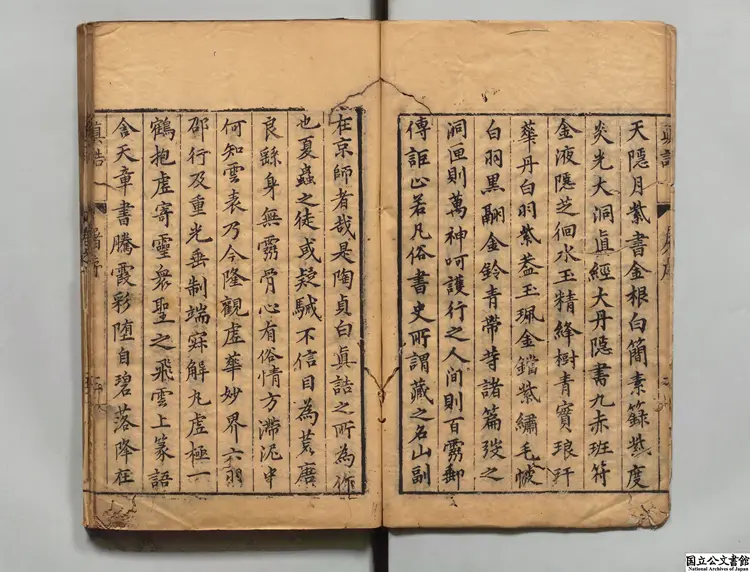 天隱月紫書金根白簡素籙紫度
炎光大洞眞經大丹隱書九赤班符
金液隱芝徊水玉精絳樹青實琅玕
華丹白羽紫蓋玉珮金鐺紫繡毛帔
白羽黒翮金鈴青帶等諸篇發之
洞匣則萬神呵護行之人间則百靈郵
傳詎止若凡俗書史所謂藏之名山副
在京師者哉是陶貞白眞誥之所為作
也夏蟲之徒或疑駴不信目為荒唐
良繇身無靈骨心有俗情方滯泥中
何知雲表乃今隆觀虛華妙界六羽
邵行及重光垂制端寀解九虛極一
鶴抱虛寄靈衆聖之飛雲上篆語
含天章書騰霞彩堕自碧落降在
眞誥
國立公文書館
National Archives of Japan